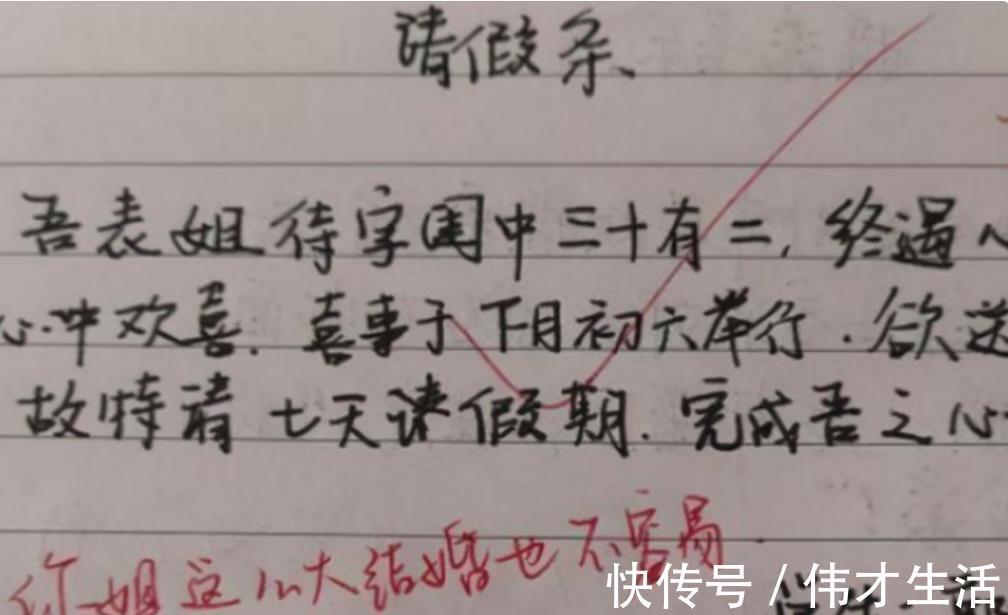 请假条
吾表姐待字闺中三十有二,终遇
心中欢喜.喜事于下月初六举行.欲送
故特请七天课假期.完成吾之心
你姐这么大结婚也不容易.
快传号 / 伟才生活